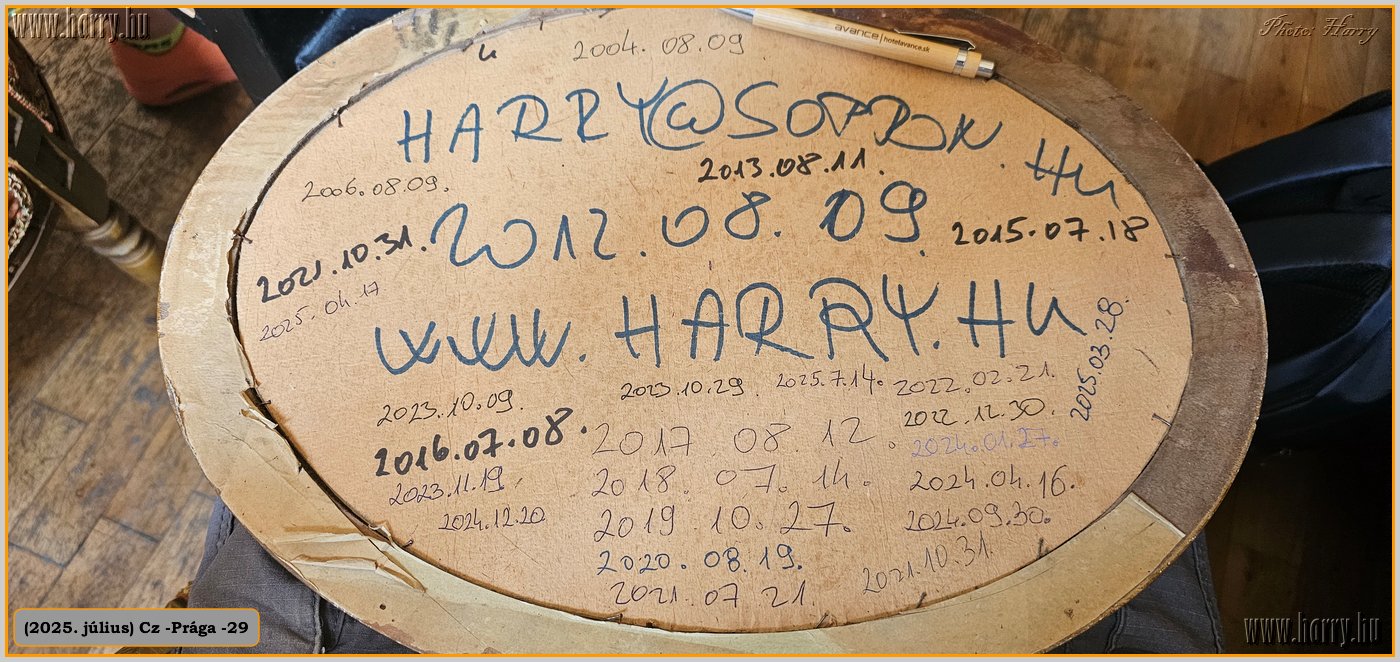 www.harry.hu
Photo: Harry
avance | hotelavance.sk
2004. 08. 09
HARRY@SOPRON.HU
2013.08.11.
2006.08.09.
2012.08.09.
2015.07.18
2021.10.31.
2025.04.17
WWW.HARRY.HU
2025.03.28.
2023.10.29
2025.7.14.
2022.02.21.
2023.10.09.
2022.12.30.
2016.07.08.
2017 08.12.
2024.01.27.
2023.11.19.
2018. 07. 14.
2024.04.16.
2024.12.20
2019 10. 27.
2024.09.30.
2020. 08.19.
2021.10.31.
2021. 07 21.
(2025. július) Cz -Prága -29
www.harry.hu